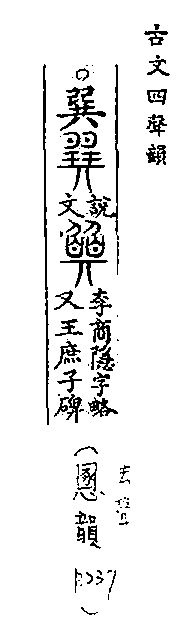 古文四聲韻
○巽
說文
李商隱字略
又王庶子碑
去聲
(慁韻
)